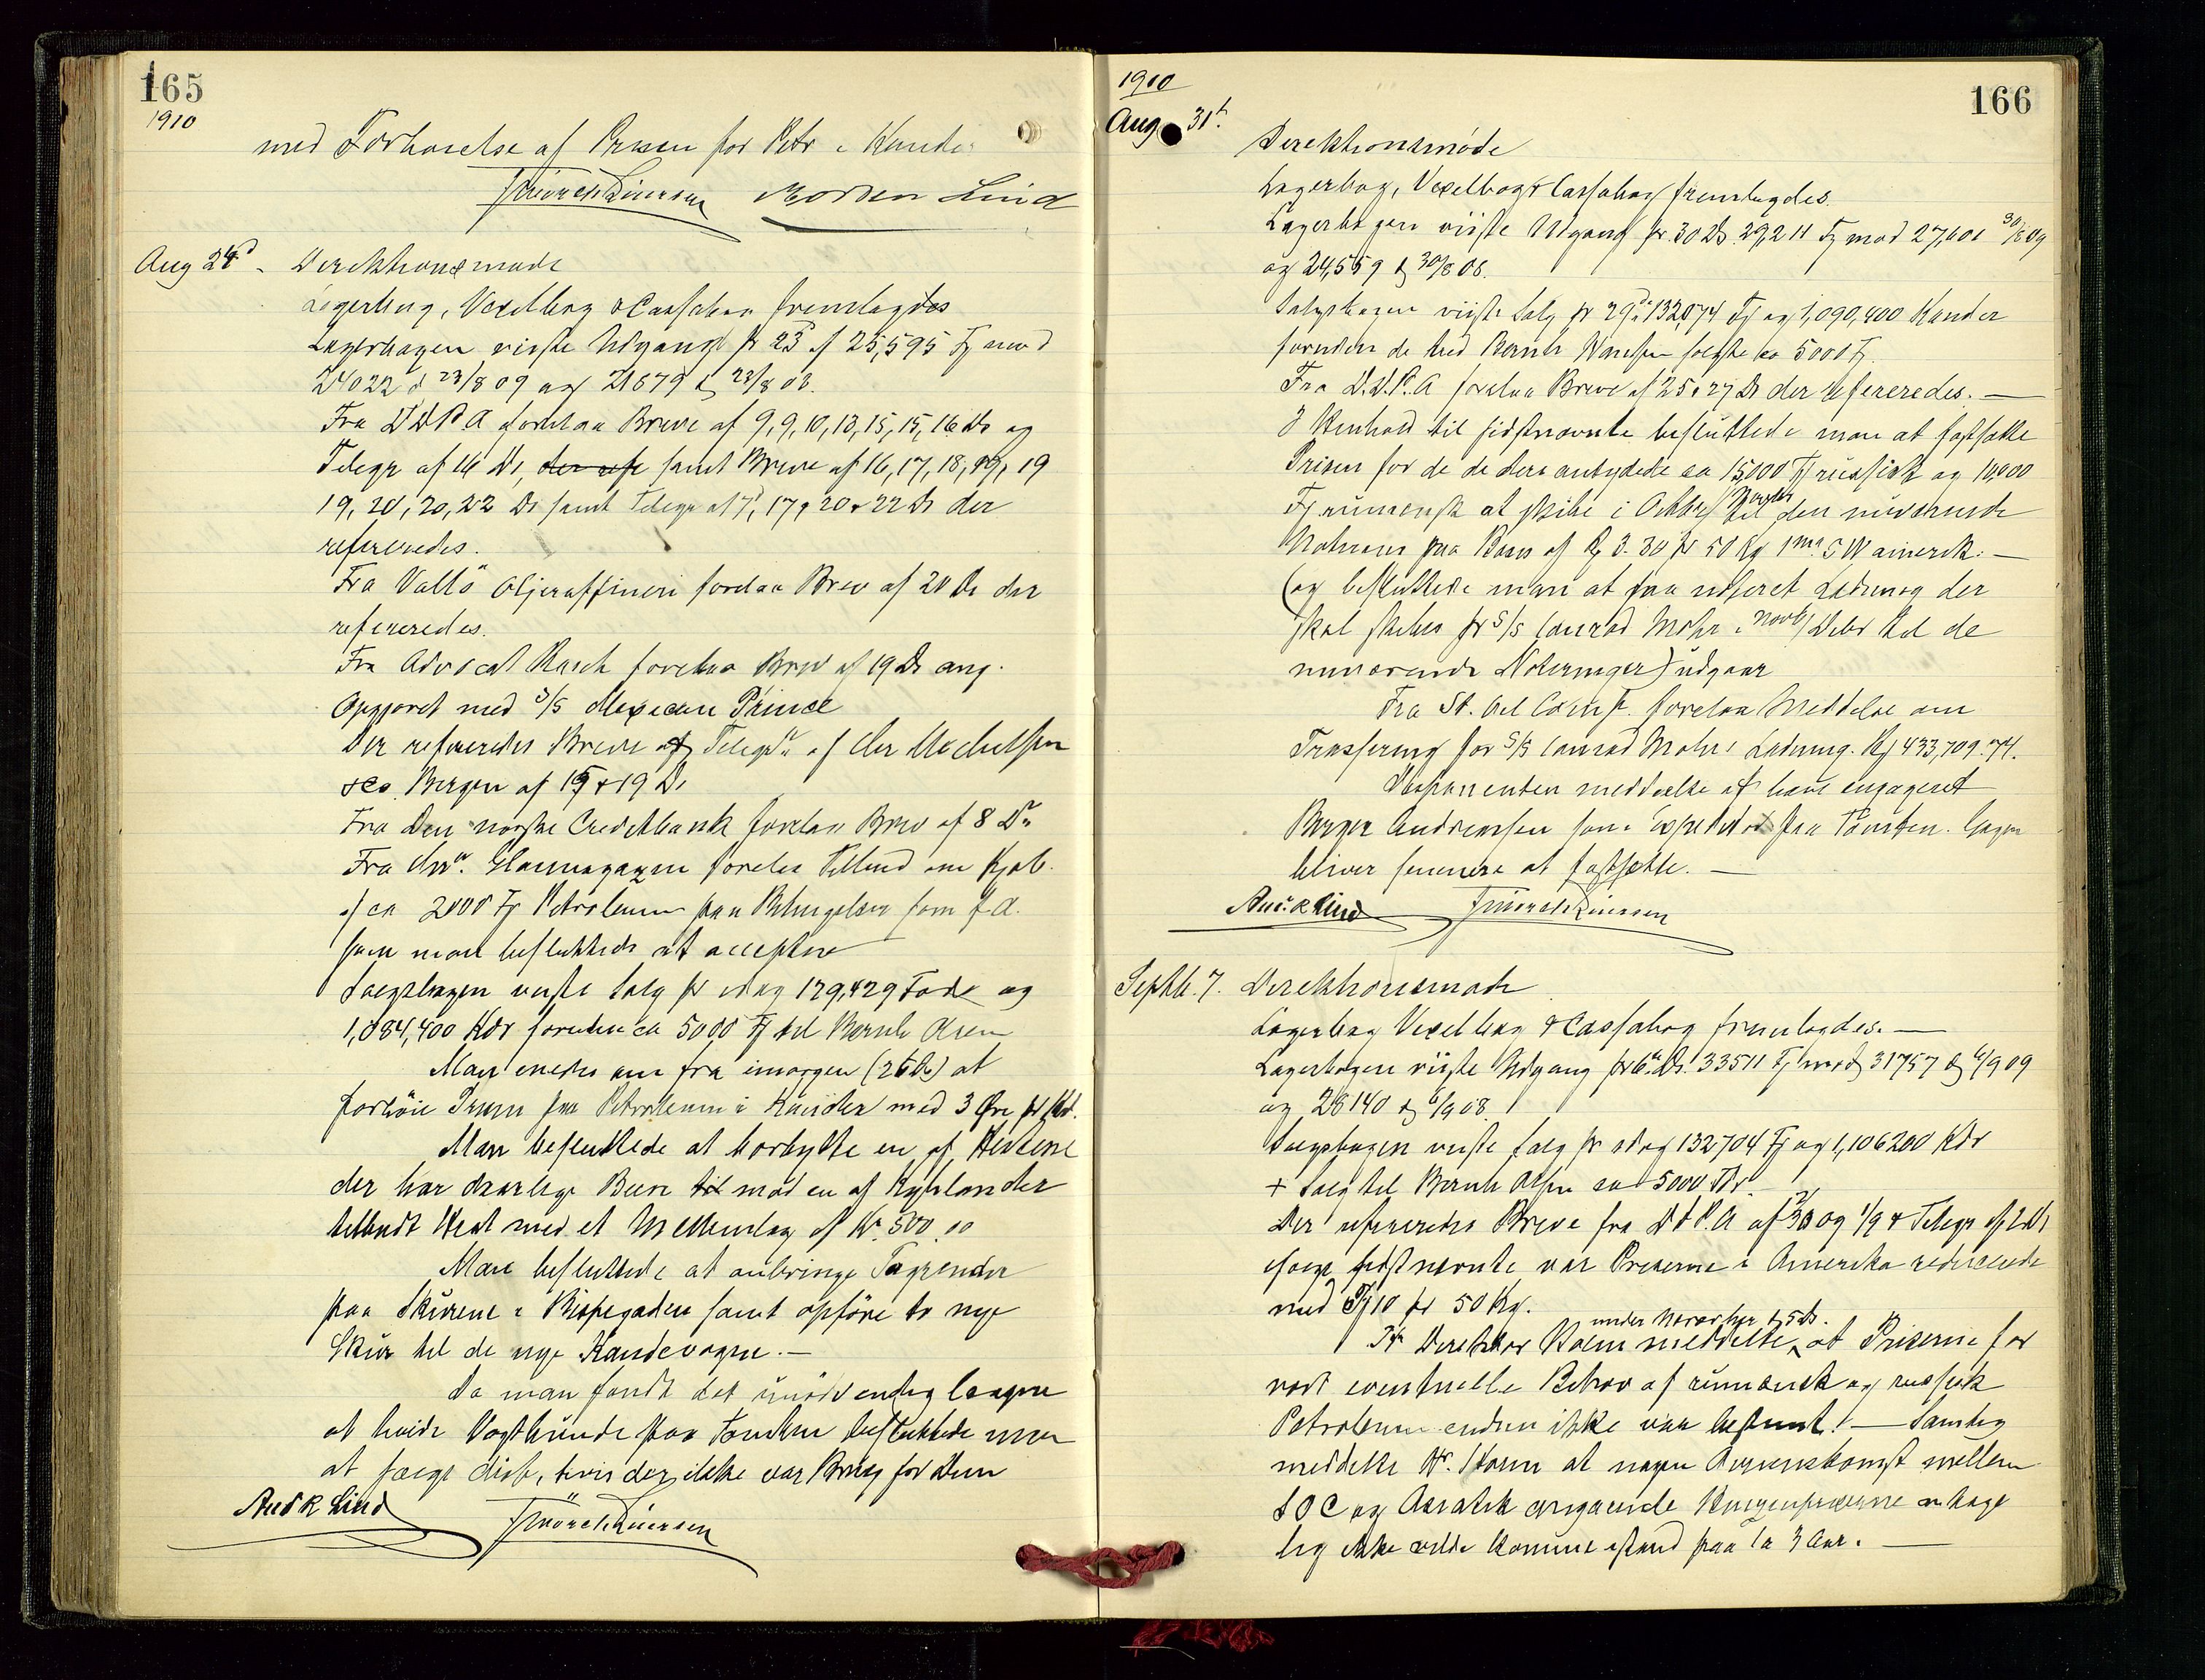 165
1910
med Forhøielse af Prisen for Petr i Kander
Morten Lind
Aug 24d. Direktionsmøde
Lagerbog, Vexelbog & Cassabog fremlagdes
Lagerbogen viiste Udgang pr 23 ds 25,595 Fj mod
24022 d 23/8 09 og 21679 d 23/8 08.
Fra D.D.P.A. forelaa Breve af 9, 9, 10, 13, 15, 15, 16 Ds og
Telegr af 16 Ds, der refe samt Breve af 16, 17, 18, 19, 19
19, 20, 20, 22 Ds samt Telegr af 17, 17, 20 & 22 Ds der
refereredes.
Fra Vallö Oljeraffineri forelaa Brev af 20 Ds der
refereredes.
Fra Advocat Rasch forelaa Brev af 19 Ds ang.
Opgjøret med S/S Mexican Prince
Der refereredes Breve og Telegr af Chr Michelsen
& Co. Bergen af 15 & 19 Ds
Fra Den norske Creditbank forelaa Brev af 8 Ds
Fra Chra. Glasmagazin forelaa Tilbud om Kjøb
af ca 2000 Fj Petroleum paa Betingelser som f.A.
som man besluttede at acceptere
Salgsbogen viiste Salg pr idag 129,429 Fade og
1,084,400 Kdr foruden ca 5000 Fj til Bernh Olsen
Man enedes om fra imorgen (25 Ds) at
forhöie Prisen paa Petroleum i Kander med 3 Øre pr Kd.
Man besluttede at bortbytte en af Hestene
der har daarlige Been til mod en af Kyhlander
tilbudt Hest med et Mellemlag af Kr. 500.00
Man besluttede at anbringe Tagrender
paa Skurene i Bispegaden samt opföre to nye
Skur til de nye Kandevogne.—
Da man fandt det unödvendig længere
at holde Vagthunde paa Tomten besluttede man
at sælge disse, hvis der ikke var Brug for Dem
And R Lind
1910
166
Aug 31t.
Direktionsmøde
Lagerbog, Vexelbog & Cassabog fremlagdes.
Lagerbogen viiste Udgang pr. 30 Ds. 29,211 Fj mod 27,601 30/8 09
og 24,559 d 30/8 08.
Salgsbogen viiste Salg pr 29 ds 132,074 Fj og 1,090,400 Kander
foruden de ved Bernh Hansen solgte ca 5000 Fj.
Fra D.D.P.A forelaa Breve af 25 & 27 Ds der refereredes.—
I Henhold til sidstnævnte besluttede man at fastsætte
Prisen for de de ders antydede ca 15,000 Fj russisk og 10,000
Fj rumænsk at skibe i Octbr/Novbr til den nuværende
Notering paa Basis af Rj 3.30 pr 50 Kg 1ma S W ameerik.—
(og besluttede man at paa udseret Ladning der
skal skibes pr S/S Conrad Mohr i Novb/Debr til de
nuværende Noteringer) udgaar
Fra St. Oel Comp. forelaa Meddelse om
Trasering for S/S Conrad Mohrs Ladning. Rj 433,709.74.
Disponenten meddelte at have engageret
Birger Andreassen som Expeditør paa Tomten. Gagen
bliver senere at fastsætte.—
And. R Lind
Septb. 7. Direktionsmøde
Lagerbog Vexelbog & Cassabog fremlagdes.—
Lagerbogen viiste Udgang pr 6 Ds. 33511 Fj mod 31757 d 6/9 09
og 28140 d 6/9 08.
Salgsbogen viiste Salg pr idag 132704 Fj og 1,106200 Kdr
+ Salg til Bernh Olsen ca 5000 Fdr.
Der refereredes Breve fra D.D.P.A af 30 og 1/9 & Telegr af 2 Ds
ifølge sidstnævnte var Priserne i Amerika reducerede
med Pf 10 pr 50 Kg.
under Nærvær d 5 Ds.
Hr Direktør Holm meddelte, at Priserne for
vort eventuelle Behov af rumænsk og russisk
Petroleum endnu ikke var bestemt.— Samtidig
meddelte Hr. Holm at nogen Overenskomst mellem
S O C og Asiatik angaaende Krigspriserne antage
lig ikke vilde komme istand paa 1 a 3 Aar.—